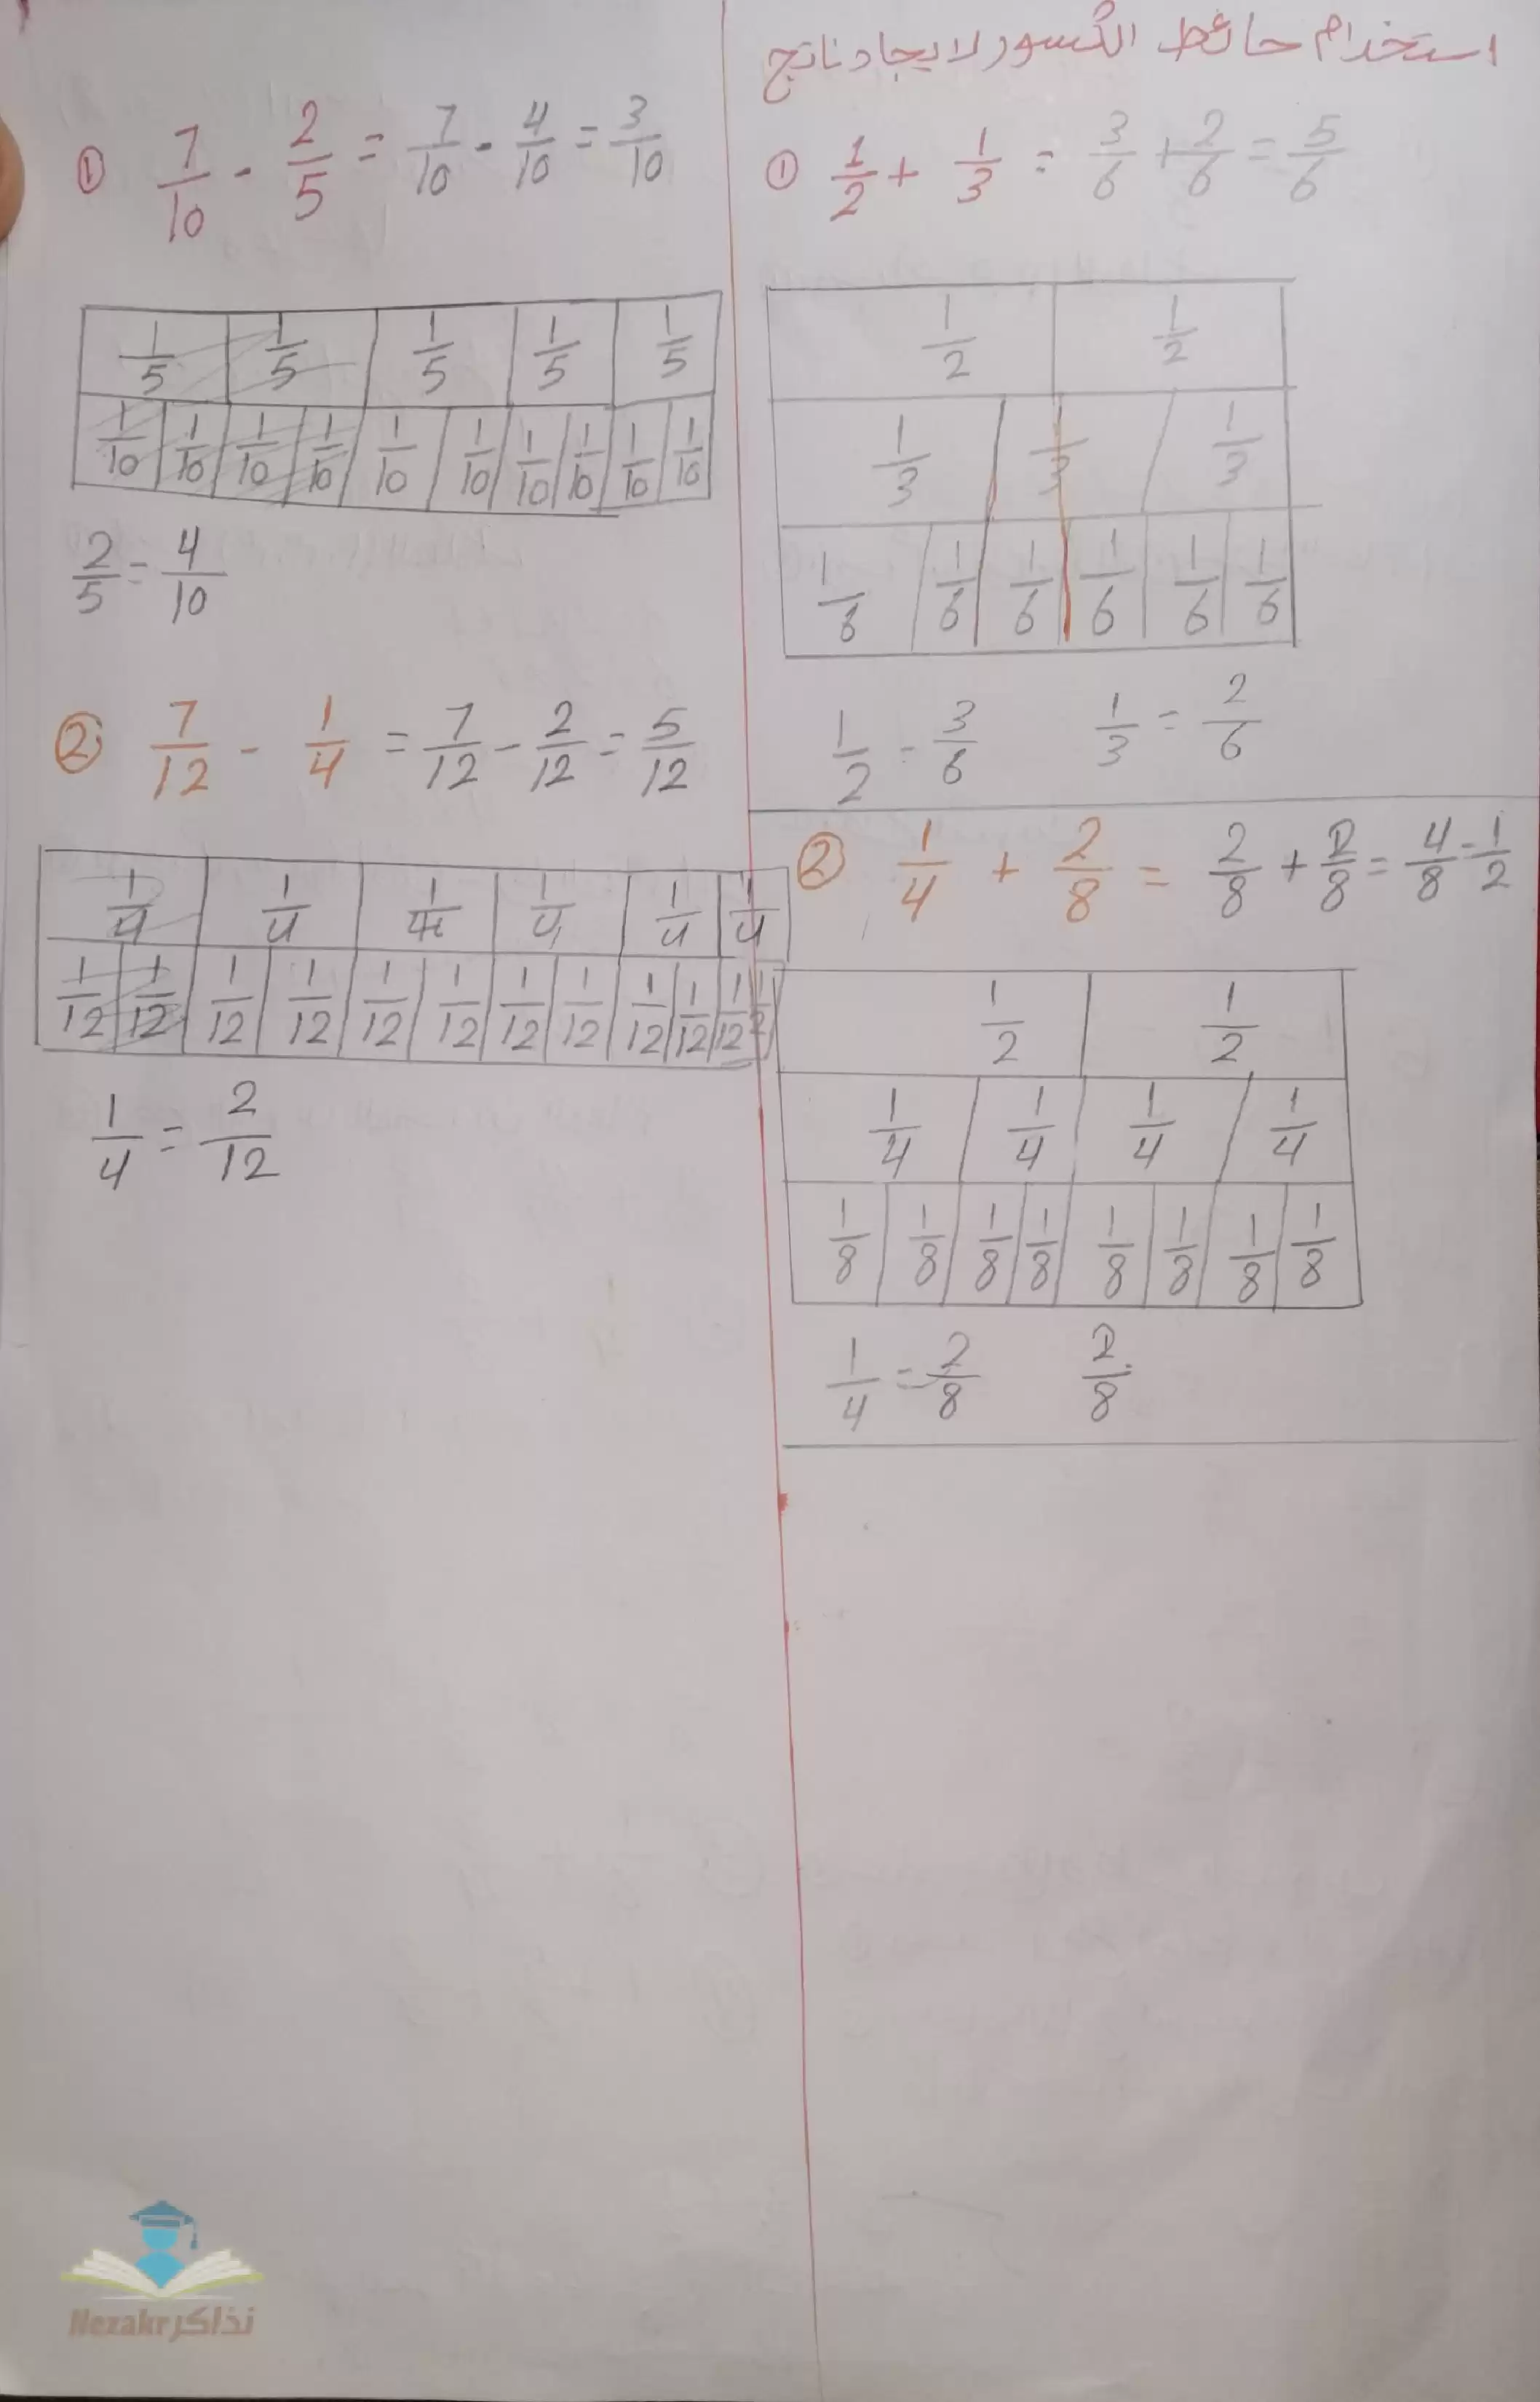 استخدام حائط الكسور لايجاد ناتج
① 1/2 + 1/3 = 3/6 + 2/6 = 5/6
1/2 1/2
1/3 1/3 1/3
1/6 1/6 1/6 1/6 1/6 1/6
1/2 = 3/6 1/3 = 2/6
② 1/4 + 2/8 = 2/8 + 2/8 = 4/8 = 1/2
1/2 1/2
1/4 1/4 1/4 1/4
1/8 1/8 1/8 1/8 1/8 1/8 1/8 1/8
1/4 = 2/8 2/8
① 7/10 - 2/5 = 7/10 - 4/10 = 3/10
1/5 1/5 1/5 1/5 1/5
1/10 1/10 1/10 1/10 1/10 1/10 1/10 1/10 1/10 1/10
2/5 = 4/10
② 7/12 - 1/4 = 7/12 - 2/12 = 5/12
1/4 1/4 1/4 1/4 1/4 1/4
1/12 1/12 1/12 1/12 1/12 1/12 1/12 1/12 1/12 1/12 1/12 1/12
1/4 = 2/12
Nezakr نذاكر